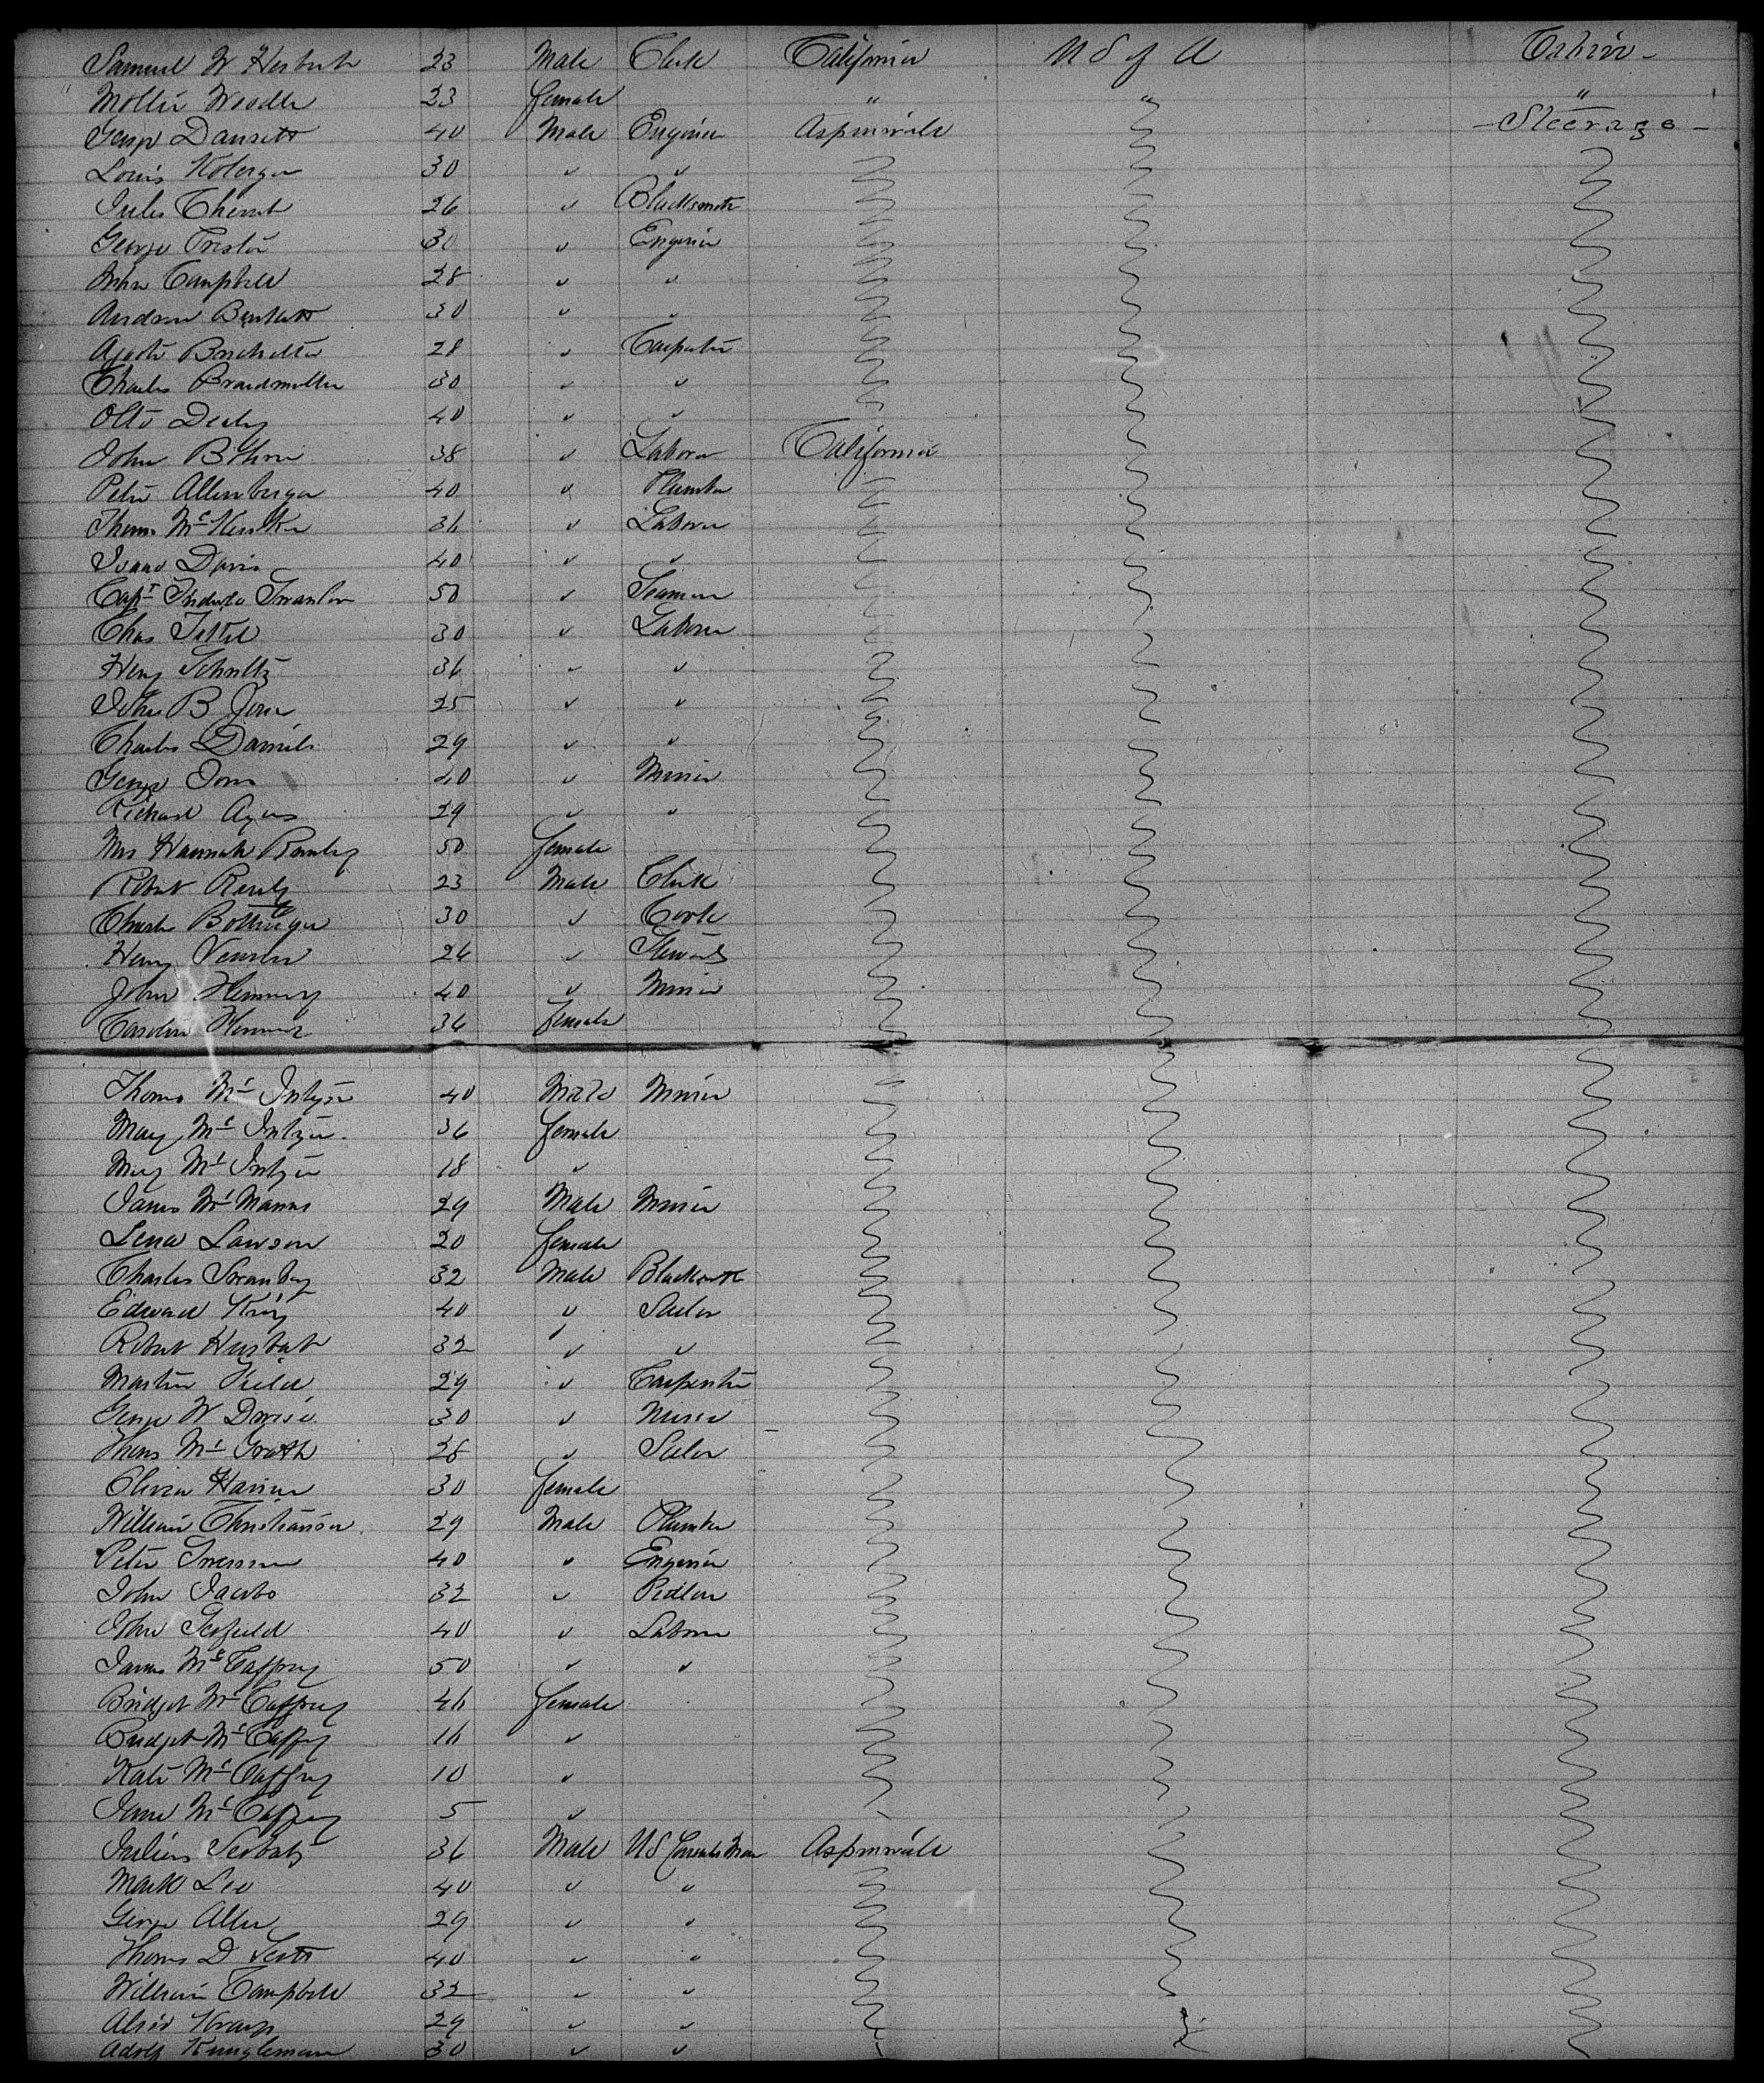 Samuel W Herbert 23 Male Clerk California U S of A Cabin -
Mollie Woodle 23 female " " "
George 40 Male Engineer Aspinwall - Steerage -
Louis 30 " "
Jules 26 " Blacksmith
George Preston 30 " Engineer
John Campbell 28 " "
Andrew 30 " "
28 " Carpenter
Charles Brandmuller 30 " "
Otto 40 " "
John Bohm 38 " Laborer California
Peter Allenberger 40 " Plumber
Thomas Mc 36 " Laborer
Isaac Davis 40 " "
Capt 50 " Seaman
Chas 30 " Laborer
Henry Schultz 36 " "
John B Jones 25 " "
Charles Daniels 29 " "
George 40 " Miner
Richard Ayers 29 " "
Mrs Hannah 50 female
Robert 23 Male Clerk
Charles Bottinger 30 " Cook
Henry 26 " Steward
John Hemmery 40 " Miner
Caroline 36 female
Thomas Mc Intyre 40 Male Miner
Mary Mc Intyre 36 female
Mary Mc Intyre 18 "
James Mc Manus 29 Male Miner
Lena Lawson 20 female
Charles Swanberg 32 Male Blacksmith
Edward King 40 " Sailor
Robert 32 " "
Martin Field 29 " Carpenter
George W 30 "
Thomas Mc Grath 28 " Sailor
Olivia 30 female
William Christianson 29 Male Plumber
Peter 40 " Engineer
John Jacobs 32 " Pedlar
John 40 " Laborer
James Mc Caffrey 50 " "
Bridget Mc Caffrey 46 female
Bridget Mc Caffrey 16 "
Kate Mc Caffrey 10 "
Jane Mc Caffrey 5 "
Julius 36 Male US Aspinwall
Mark Leo 40 " "
George Allen 29 " "
Thomas D Scott 40 " "
William Campbell 32 " "
29 " "
Adolf 30 " "